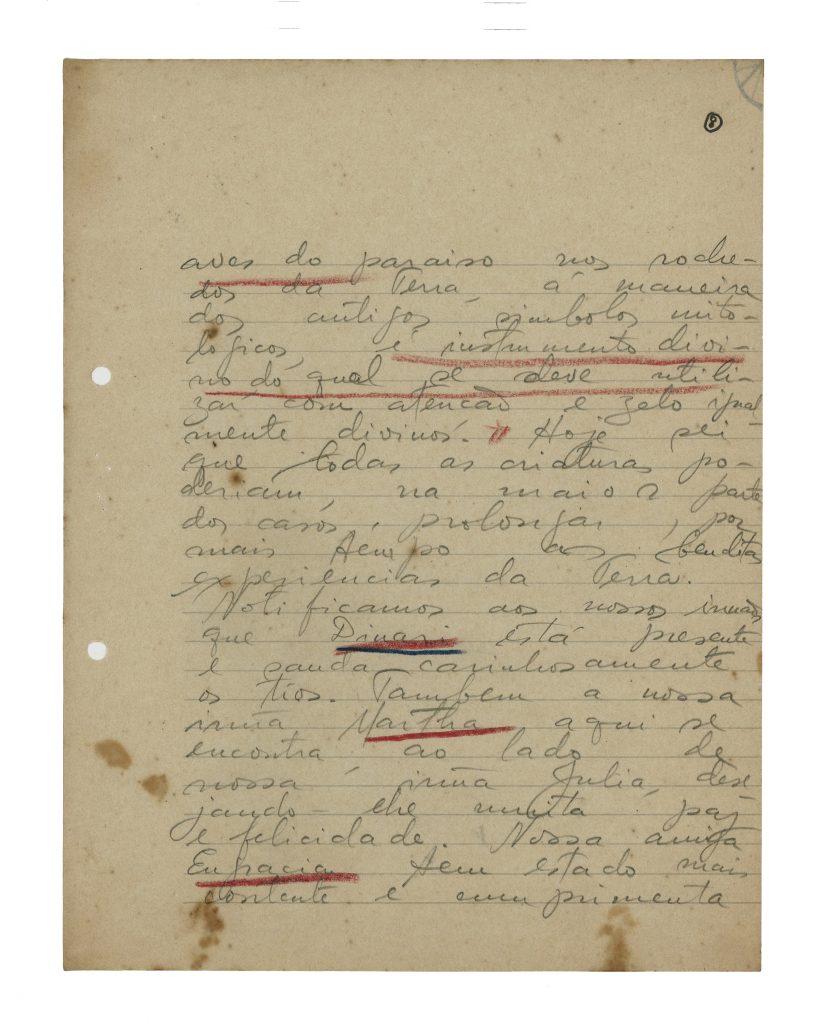 8
aves do paraiso nos roche-
dos da Terra, á maneira
dos antigos simbolos mito-
lógicos, é instrumento divi-
no do qual se deve utili-
zar com atencão e zelo igual
mente divinos. Hoje sei
que todas as criaturas po-
deriam, na maior parte
dos casos, prolongar, por
mais tempo as benditas
experiencias da Terra.
Notificamos aos nossos irmãos
que está presente
e sauda carinhosamente
os tios. Tambem a nossa
irmã Martha aqui se
encontra ao lado de
nossa irmã Julia, dese
jando-lhe muita paz
e felicidade. Nossa amiga
Engracia tem estado mais
contente e cumprimenta